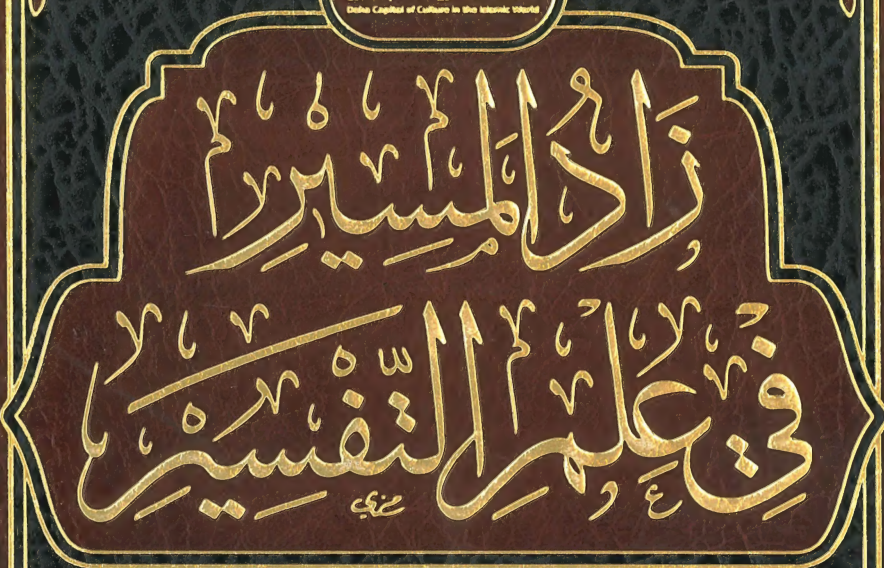 Doha Capital of Culture in the Islamic World
زَادُ الْمَسِيرِ
فِي عِلْمِ التَّفْسِيرِ